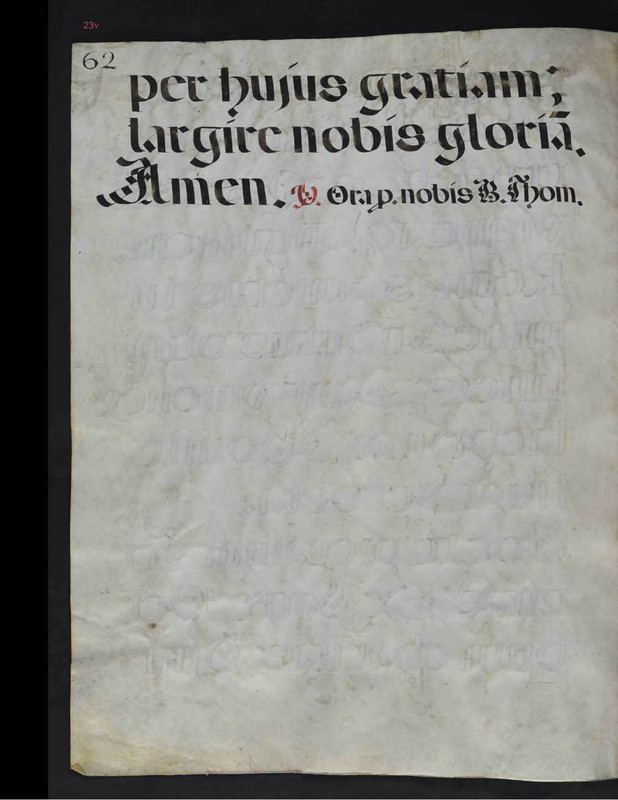 23v
62
per hujus gratiam;
largire nobis gloriā.
Amen. V. Ora p. nobis B. Thom.